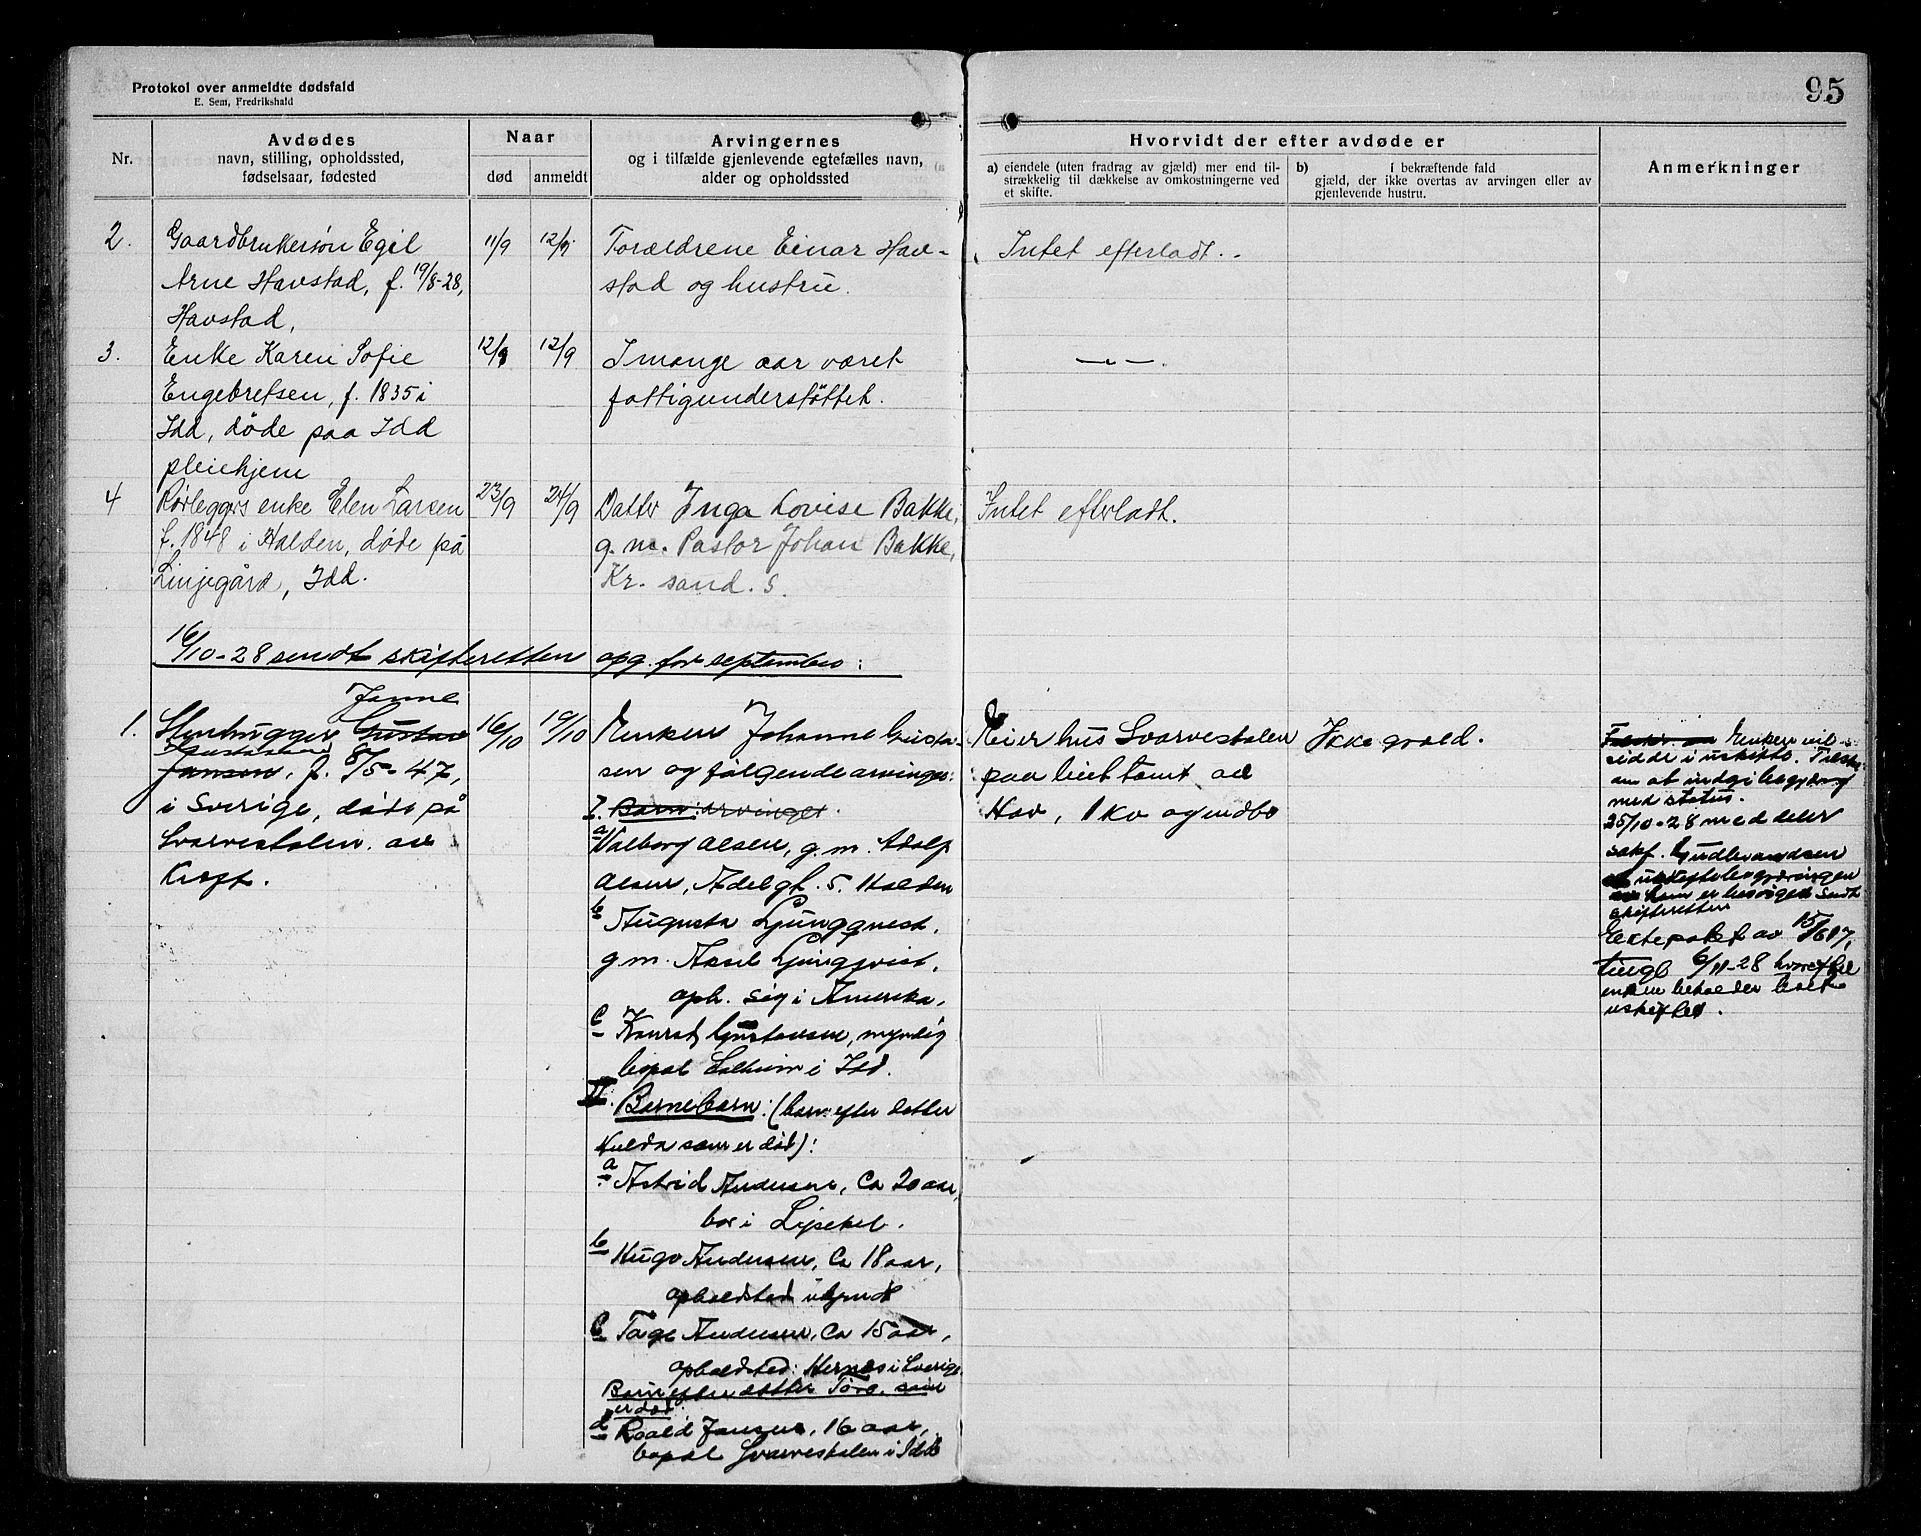 Protokol over anmeldte dødsfald
E. Sem, Fredrikshald
95
Nr.
Avdødes
navn, stilling, opholdssted,
fødselsaar, fødested
Naar
død
anmeldt
Arvingernes
og i tilfælde gjenlevende egtefælles navn,
alder og opholdssted
Hvorvidt der efter avdøde er
a) eiendele (uten fradrag av gjæld) mer end til-
strækkelig til dækkelse av omkostningerne ved
et skifte.
b) I bekræftende fald
gjæld, der ikke overtas av arvingen eller av
gjenlevende hustru.
Anmerkninger
2.
Gaardbrukersøn Egil
Arne Havstad, f. 19/8-28,
Havstad,
11/9
12/9
Forældrene Einar Hav-
stad og hustru.
Intet efterladt.
3.
Enke Karen Sofie
Engebretsen, f. 1835 i
Idd, døde paa Idd
pleiehjem
12/9
12/9
I mange aar været
fattigunderstøttet.
— " —
4
Rørleggers enke Elen Larsen
f. 1848 i Halden, døde på
Linjegård, Idd.
23/9
24/9
Datter Inga Lovise Bakke,
g. m. Pastor Johan Bakke,
Kr. sand. S.
Intet efterladt.
16/10-28 sendt skifteretten opg. for september:
1.
Janne
Stenhugger Gustav
Gustavsen
Jansen, f. 8/5-47,
i Sverige, døde på
Svarvestolen av
Kræft.
16/10
19/10
Enken Johanne Gusta-
sen og følgende arvinger:
I. Barn: arvinger.
a Valborg Olsen, g. m. Adolf
Olsen, Adelgt. 5. Halden
b Augusta Ljungqvist,
g m. Axel Ljungqvist,
oph. sig i Amerika,
c Konrad Gustavsen, myndig
bopæl i Idd.
II. Barnebarn: (barn efter datter
Hulda som er død):
a Astrid Andersen, Ca 20 aar,
bor i Lysekel.
b Hugo Andersen, Ca 18 aar,
opholdsted ukjendt
c Tage Andersen, Ca 15 aar,
opholdsted: i Sverige
Barn efter datter som
er død:
d Roald Jansen, 16 aar,
bopæl Svarvestolen i Idd
Eier hus Svarvestolen
paa leiet tomt av
Hov, 1 ko og indbo
Ikke gjæld.
Enken vil
sidde i uskifte. Tilsk.
om at indgi begjæring
med status.
25/10-28 meddeler
sakf. Gudbrandsen
uskiftebegjæringen
som er besørget sendt
skifteretten
Ektepakt av 15/6 17,
tingl 6/11-28 hvorefter
enken beholder boet
uskiftet.